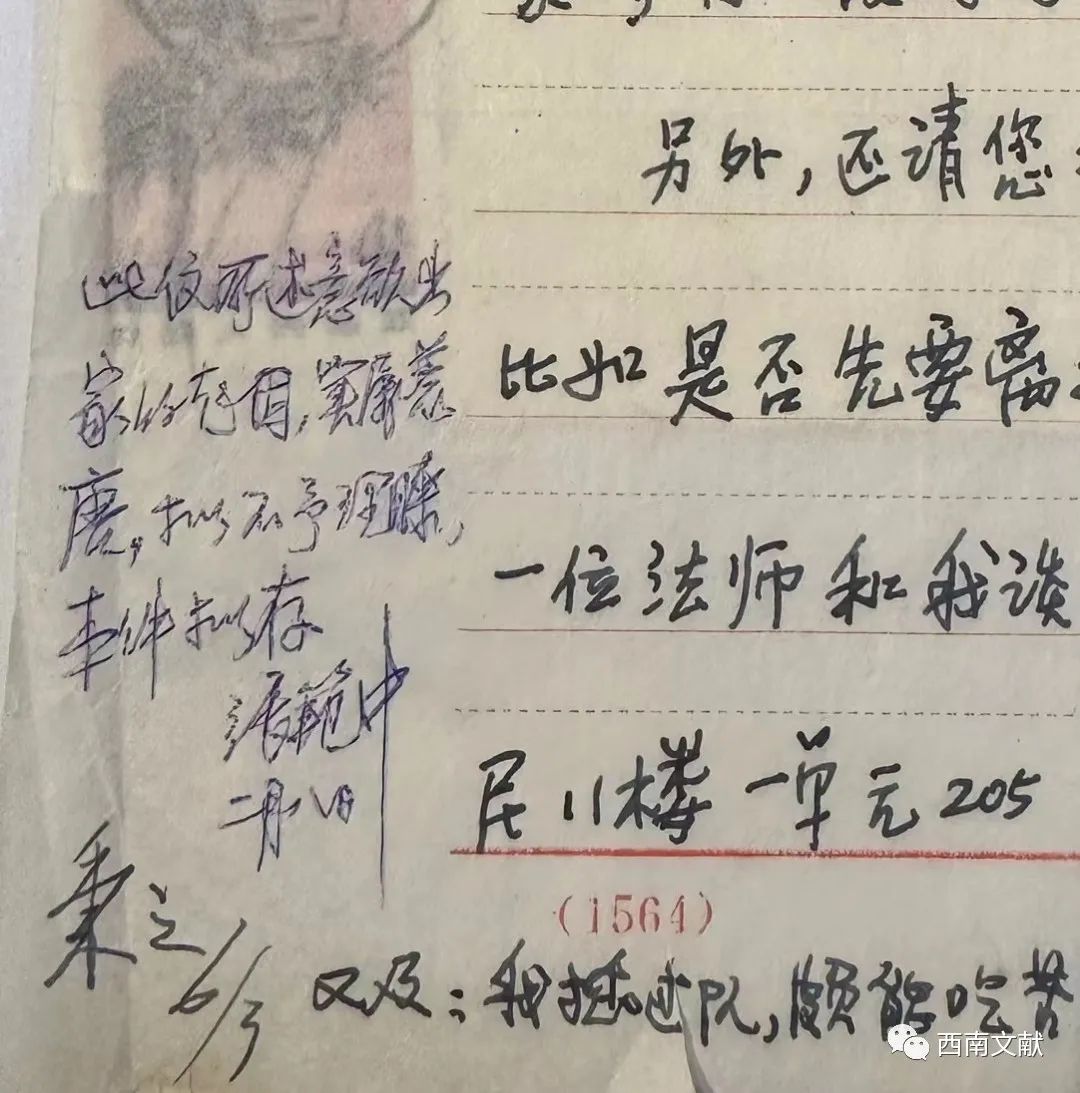 另外,还请您
比如是否先要离
一位法师和我谈
民11楼一单元205
(1564)
又及:我插过队,颇能吃苦
此信所述意欲出
家的因,实属荒
唐,拟不予理睬,
件拟存
范中
二月八日
6/3
西南文献